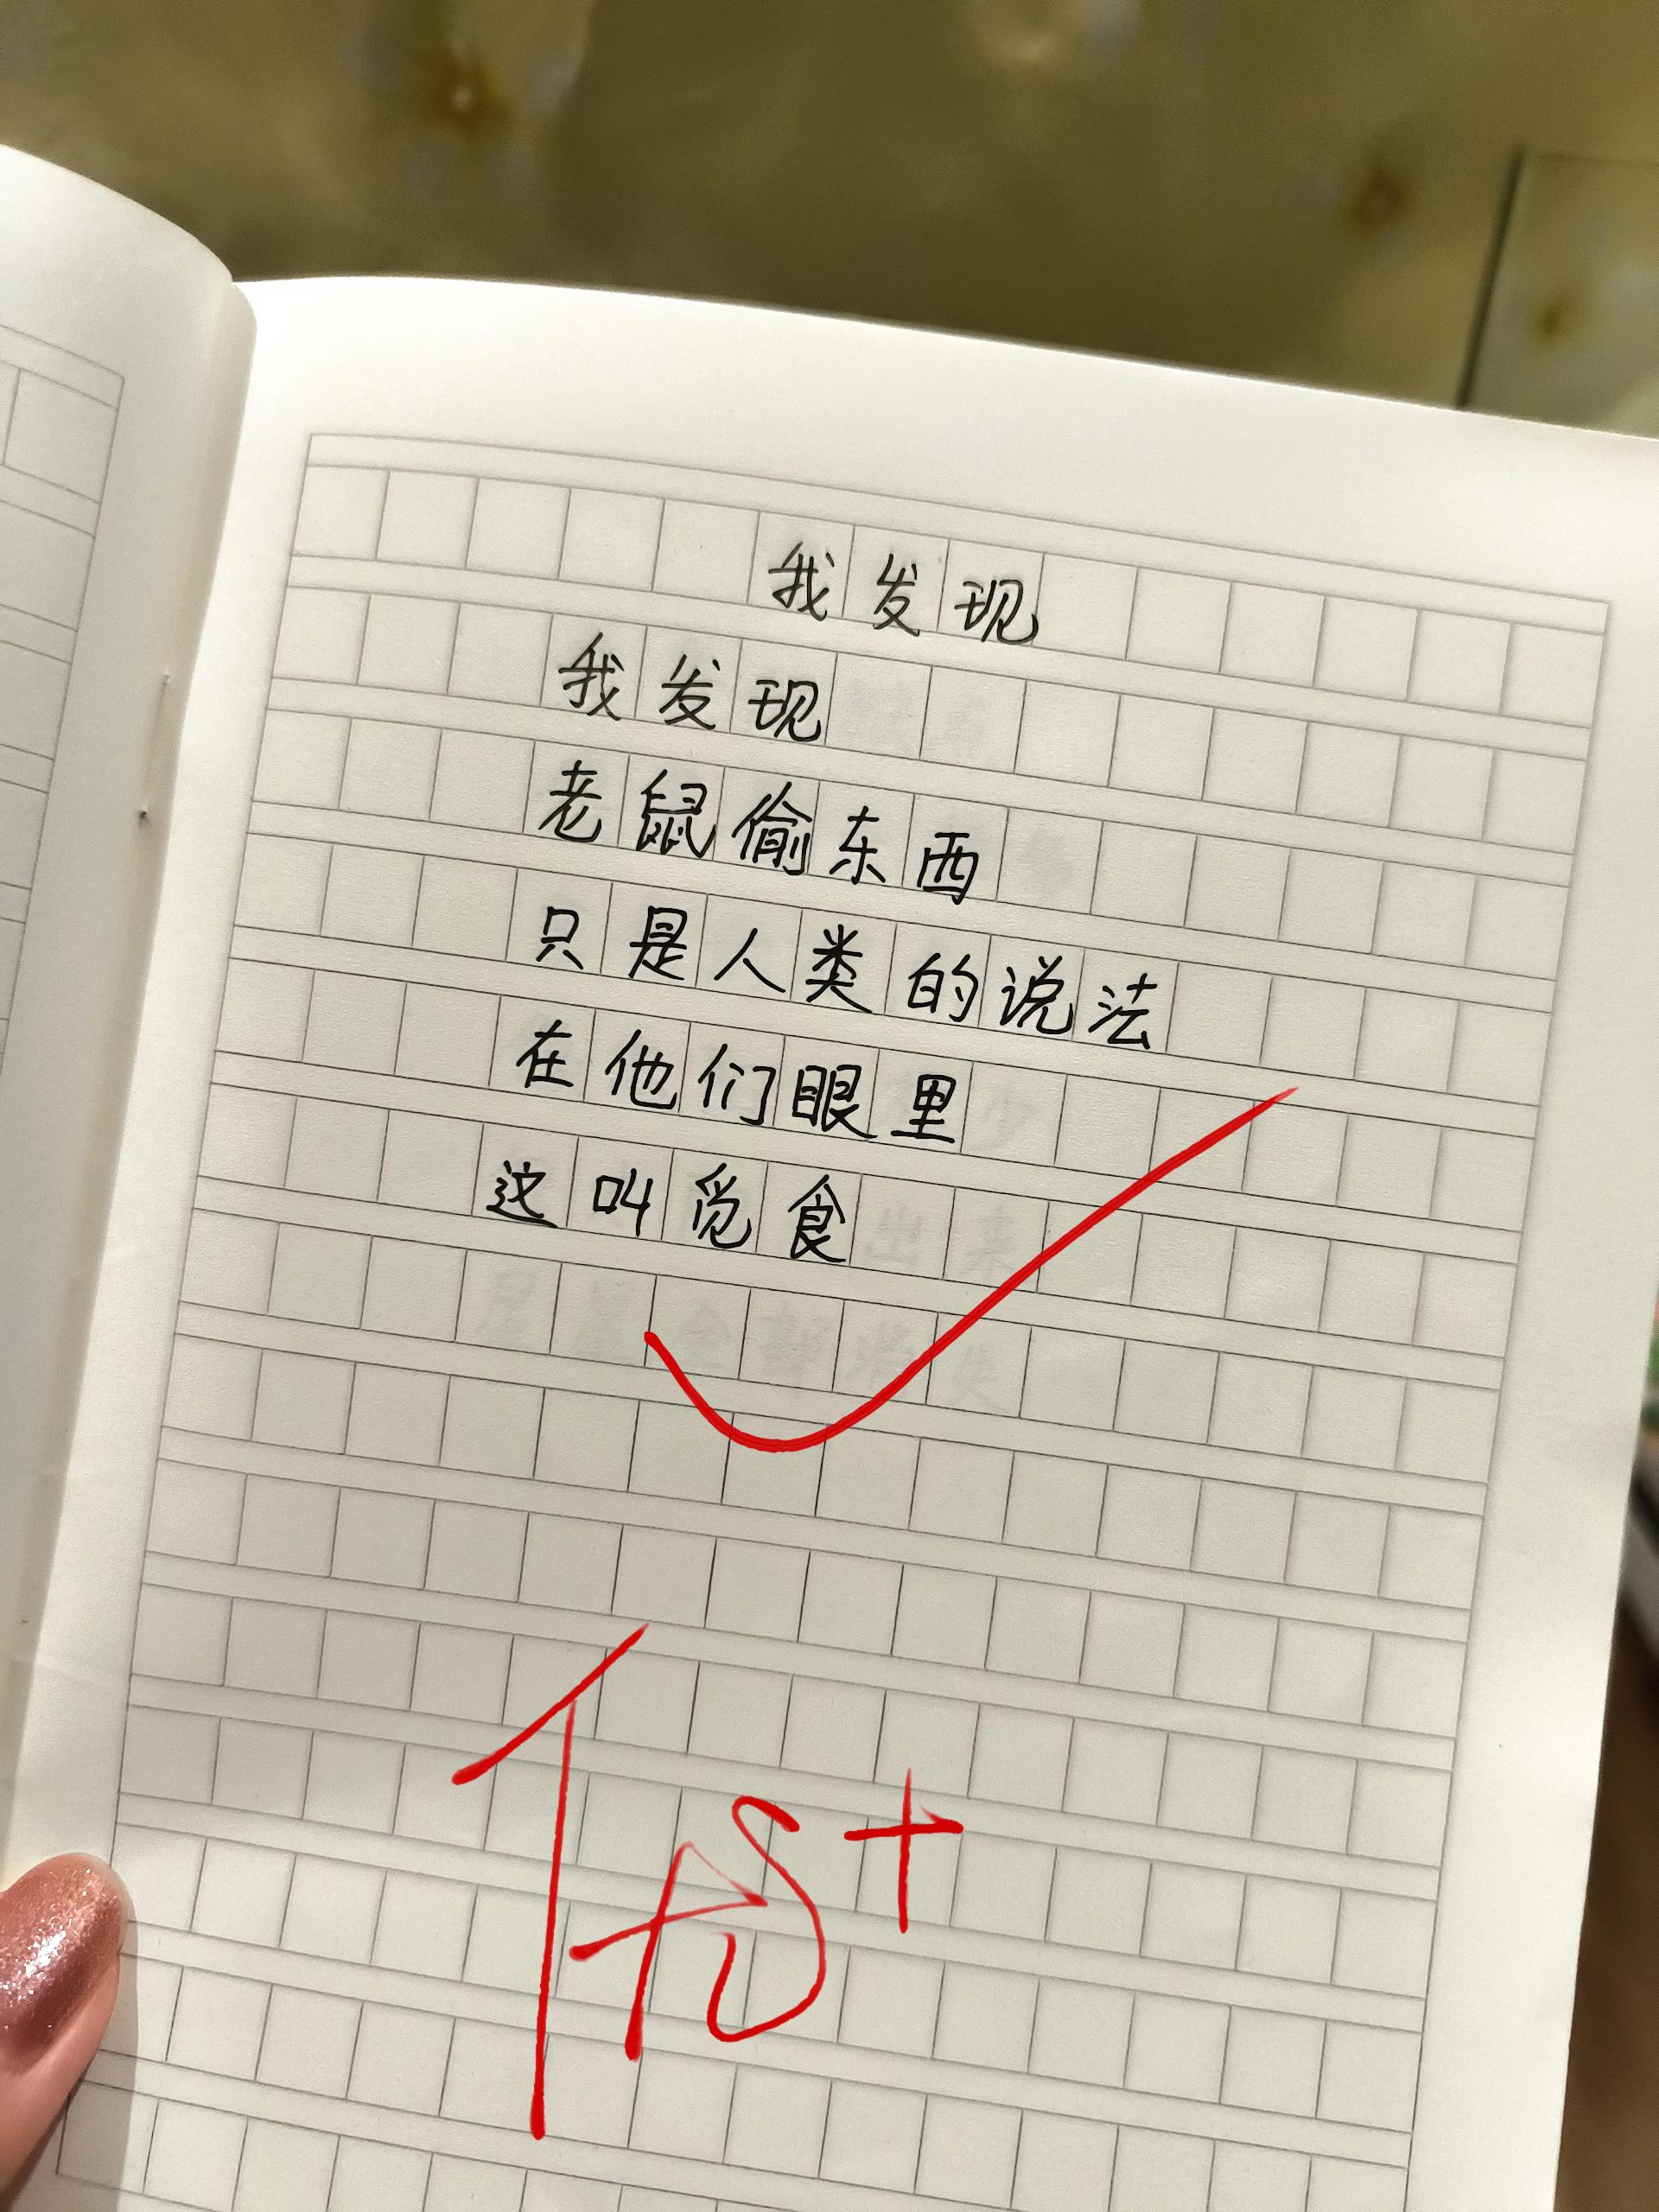 我发现
我发现
老鼠偷东西
只是人类的说法
在他们眼里
这叫觅食